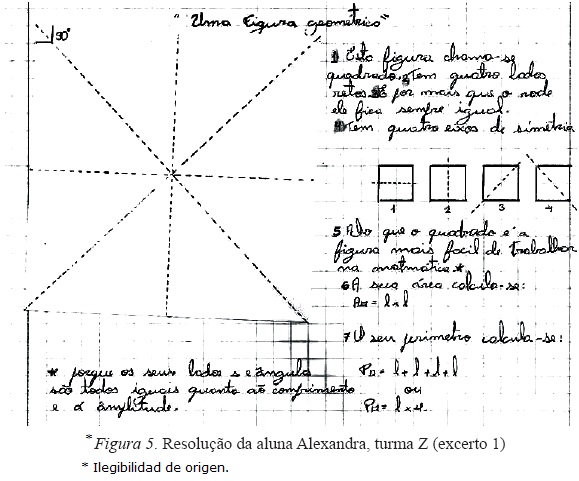 "Uma Figura geométrica"
90°
1 Esta figura chama-se
quadrado. Tem quatro lados
retos. E por mais que o rode
ele fica sempre igual.
Tem quatro eixos de simetria
1 2 3 4
5 Acho que o quadrado é a
figura mais facil de trabalhar
na matmatica *
6 A sua área calcula-se:
A□ = l x l
7 O seu perimetro calcula-se:
P□ = l + l + l + l
ou
P□ = l x 4
* porque os seus lados e ângulos
são todos iguais quanto ao comprimento
e à âmplitude.
* Figura 5. Resolução da aluna Alexandra, turma Z (excerto 1)
* Ilegibilidad de origen.